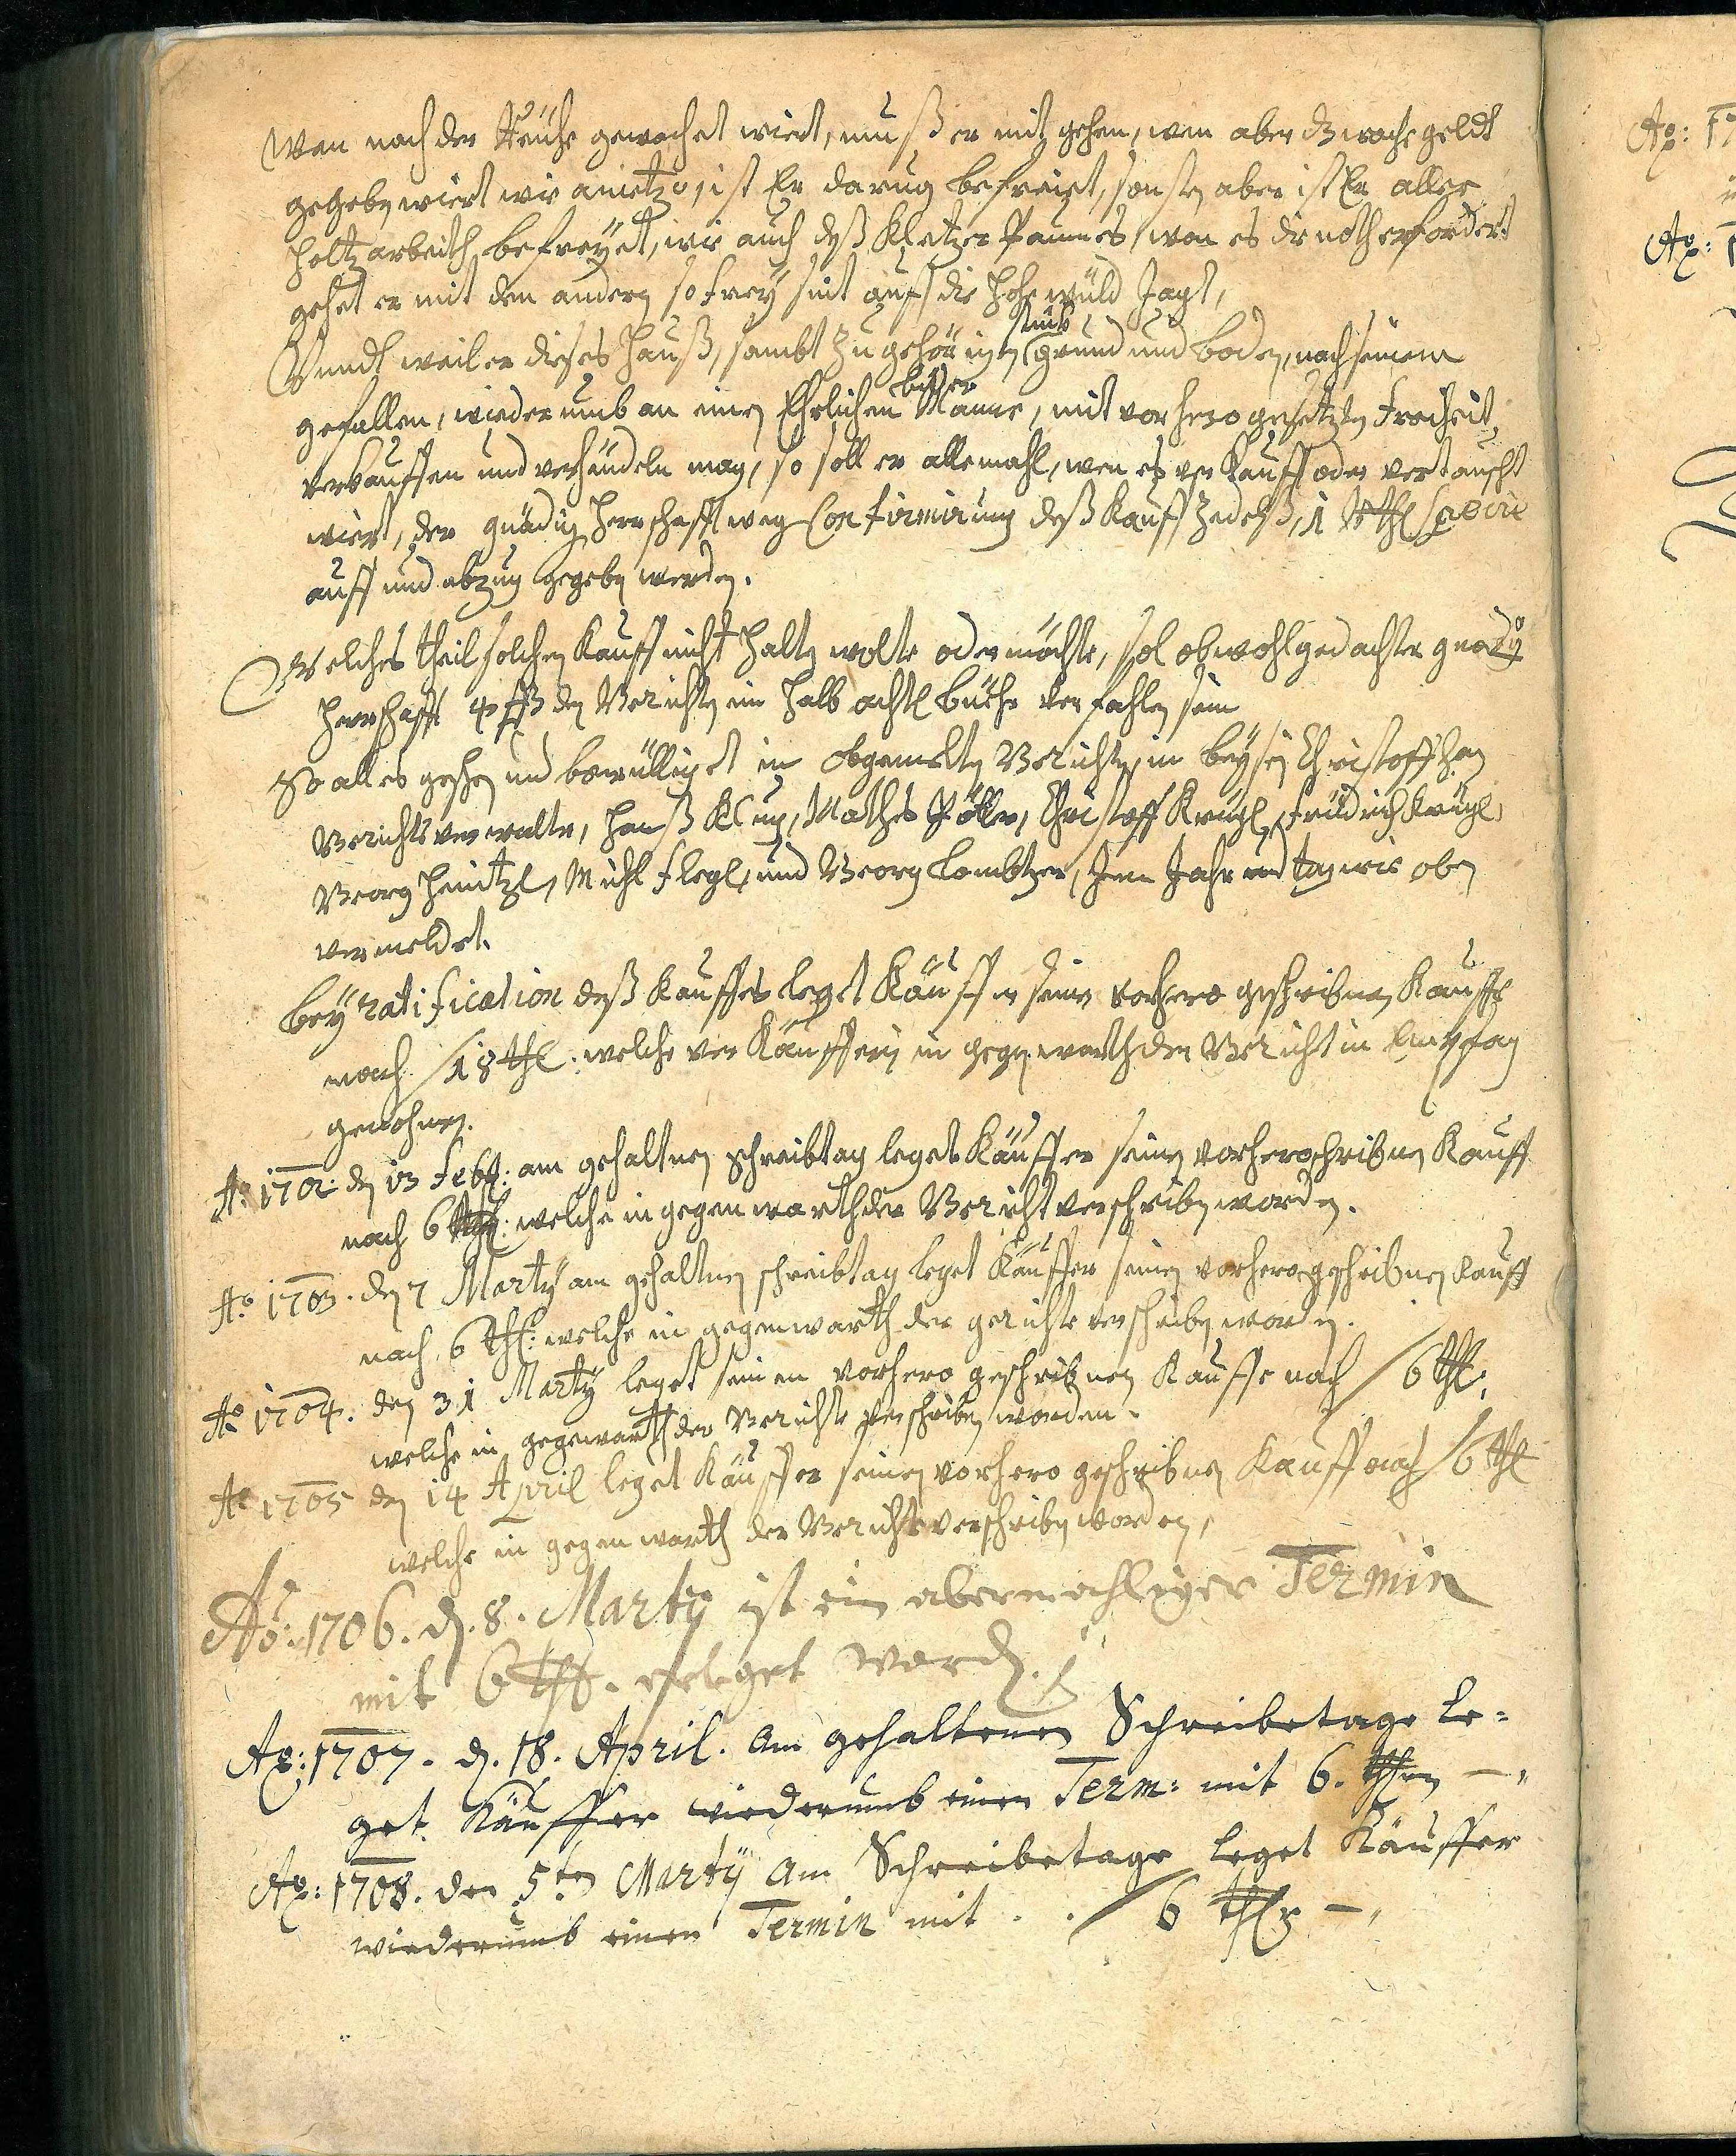 Wan nach der Reuhe gewachet wiert, muß er mit gehen, wan aber dz wache geldt
gegeben wiert wie anietzo, ist Er darvon befreiet, sonsten aber ist Er aller
holtz arbeith befreÿet, wie auch deß Kletzer Raumes, wan es die noth erfordert
gehet er mit den andern so frey sint auf die hohe wüld Jagt,
Vnndt weil er dieses Hauß, sambt zu gehörigen stück grund und boden, nach seinem
gefallen, wiederumb an einen Ehrlichen besser Manne, mit vorhero gesetzten Freiheit
verkauffen und verhandeln mag, so soll er allemahl, wen es verkaufft oder vertauscht
wiert, der gnädig Herrschafft weg Confirmirung deß Kauff Zedelß, 1 Rthl Specie
auff und abzug gegeben werden.
Welches theil solchen Kauff nicht halten wolte oder möchte, sol obwohlgedachter gnädig
Herrschafft 4 ßß den Gerichten ein halb achtl bühr verfahlen sein
So alles geschen und bewülliget in obgemelten Gerichten, im beÿsein Christoff
Gerichtsverwalter, Hanß Klug, Mathes, Christoff Krügl, Fridrich Krügl,
Georg Heintzl, Michl Flegl, und Georg Lambtzer, Im Jahr und tag wie oben
vermeldet.
beÿ ratification deß Kauffes leget Käuffer seinen vorhero geschribnen Kauff
nach / 18 thl: welche verkäufferin in gegenwarth der Gericht in Empfang
genohmen.
Ao 1702 den 13 Feb: am gehaltnen schreibtag leget Käuffer seinen vorhero schribnen Kauff
nach 6 thl: welche in gegenwarth der Gericht verschriben worden.
Ao 1703. den 7 Martÿ am gehaltnen schreibtag leget Käuffer seinen vorhero geschribnen Kauff
nach 6 thl: welche in gegenwarth der gerichte verschriben worden.
Ao 1704. den 31 Martÿ leget seinen vorhero geschribnen Kauffe nach / 6 thl:
welche in gegewarth der Gerichte verschriben worden.
Ao 1705 den 14 April leget Käuffer seinen vorhero geschribnen Kauff nach / 6 thl
welche in gegenwarth der Gerichte verschriben worden,
Ao: 1706. d. 8. Martÿ ist ein abermahliger Termin
mit 6 thl. erleget word.
Ao: 1707. d. 18. April. am gehaltenen Schreibetage le=
get Käuffer wiederumb einen Term: mit 6. thlr —"
Ao: 1708. den 5ten Martÿ am Schreibetage leget Käuffer
wiederumb einen Termin mit . . / 6 thlr —"
Ao: 17
Ao: 1